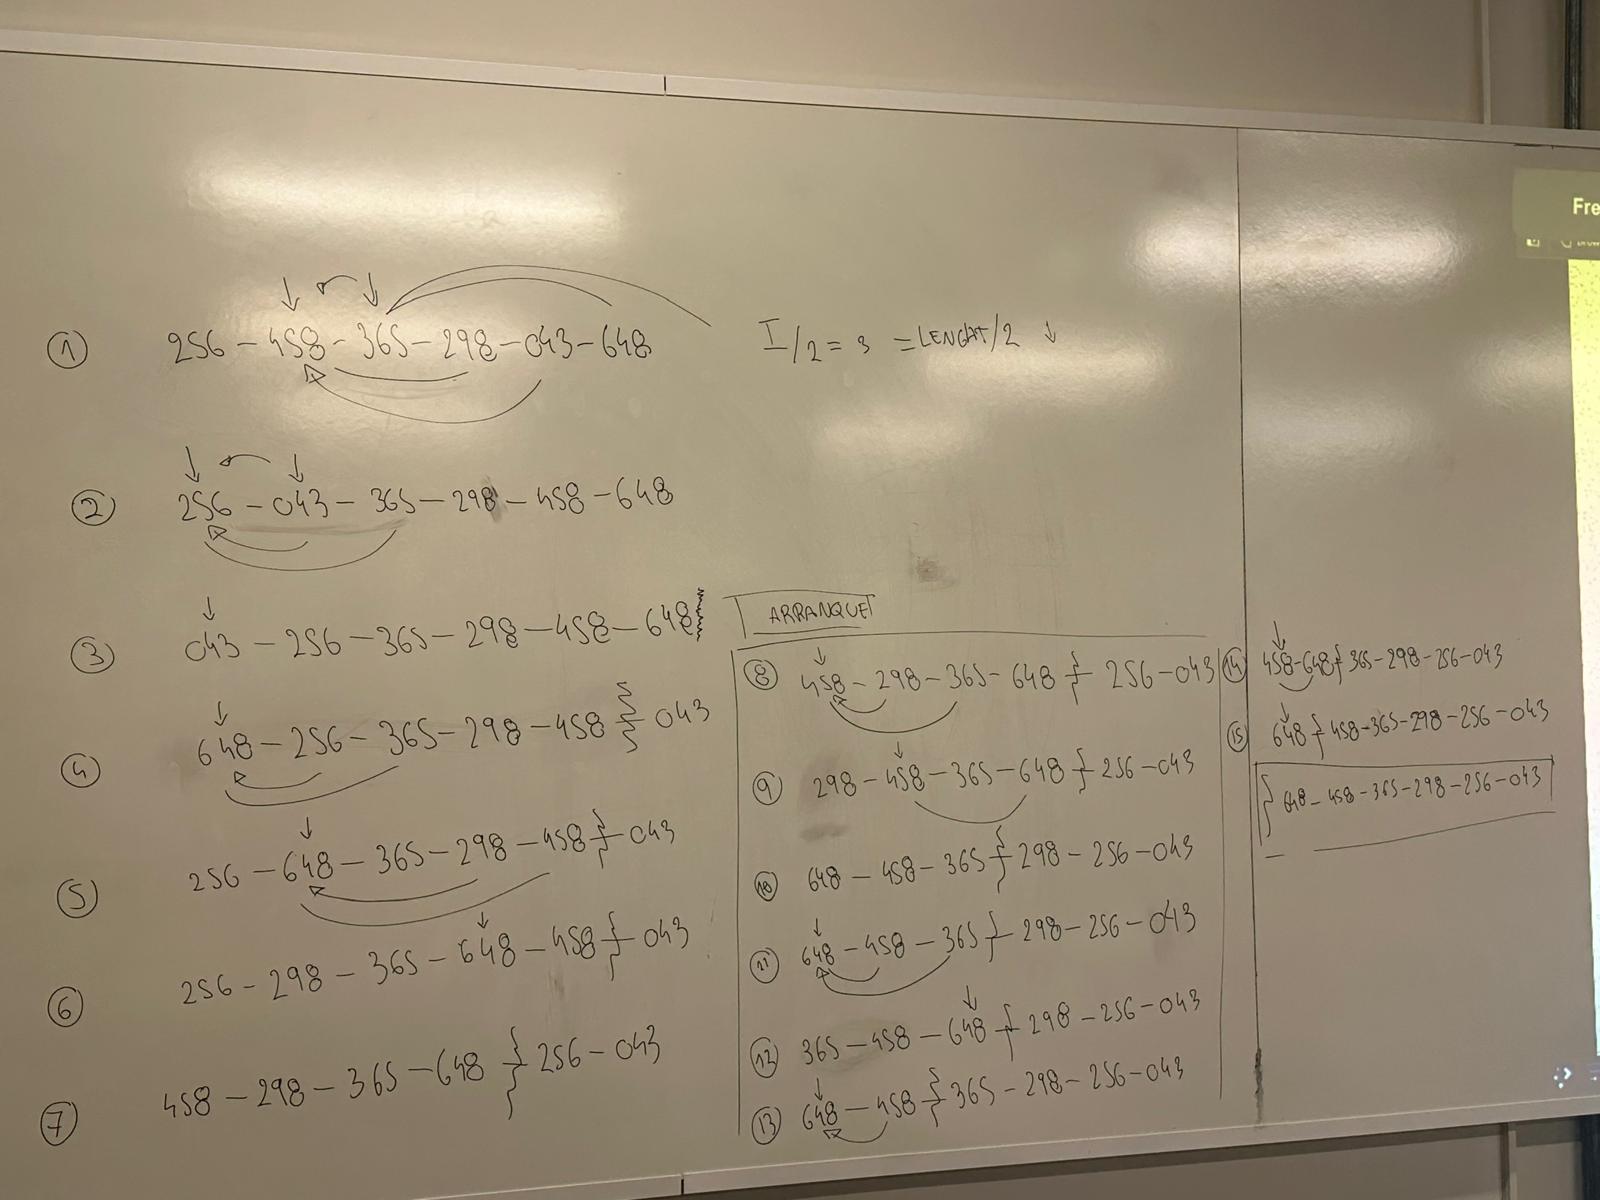 ① 256 - 458 - 365 - 298 - 043 - 648
I/2 = 3 = LENGHT/2 ↓
② 256 - 043 - 365 - 298 - 458 - 648
③ 043 - 256 - 365 - 298 - 458 - 648
④ 648 - 256 - 365 - 298 - 458 } 043
⑤ 256 - 648 - 365 - 298 - 458 } 043
⑥ 256 - 298 - 365 - 648 - 458 } 043
⑦ 458 - 298 - 365 - 648 } 256 - 043
ARRANQUE
⑧ 458 - 298 - 365 - 648 } 256 - 043
⑨ 298 - 458 - 365 - 648 } 256 - 043
⑩ 648 - 458 - 365 } 298 - 256 - 043
⑪ 648 - 458 - 365 } 298 - 256 - 043
⑫ 365 - 458 - 648 } 298 - 256 - 043
⑬ 648 - 458 } 365 - 298 - 256 - 043
⑭ 458 - 648 } 365 - 298 - 256 - 043
⑮ 648 } 458 - 365 - 298 - 256 - 043
} 648 - 458 - 365 - 298 - 256 - 043
Fre